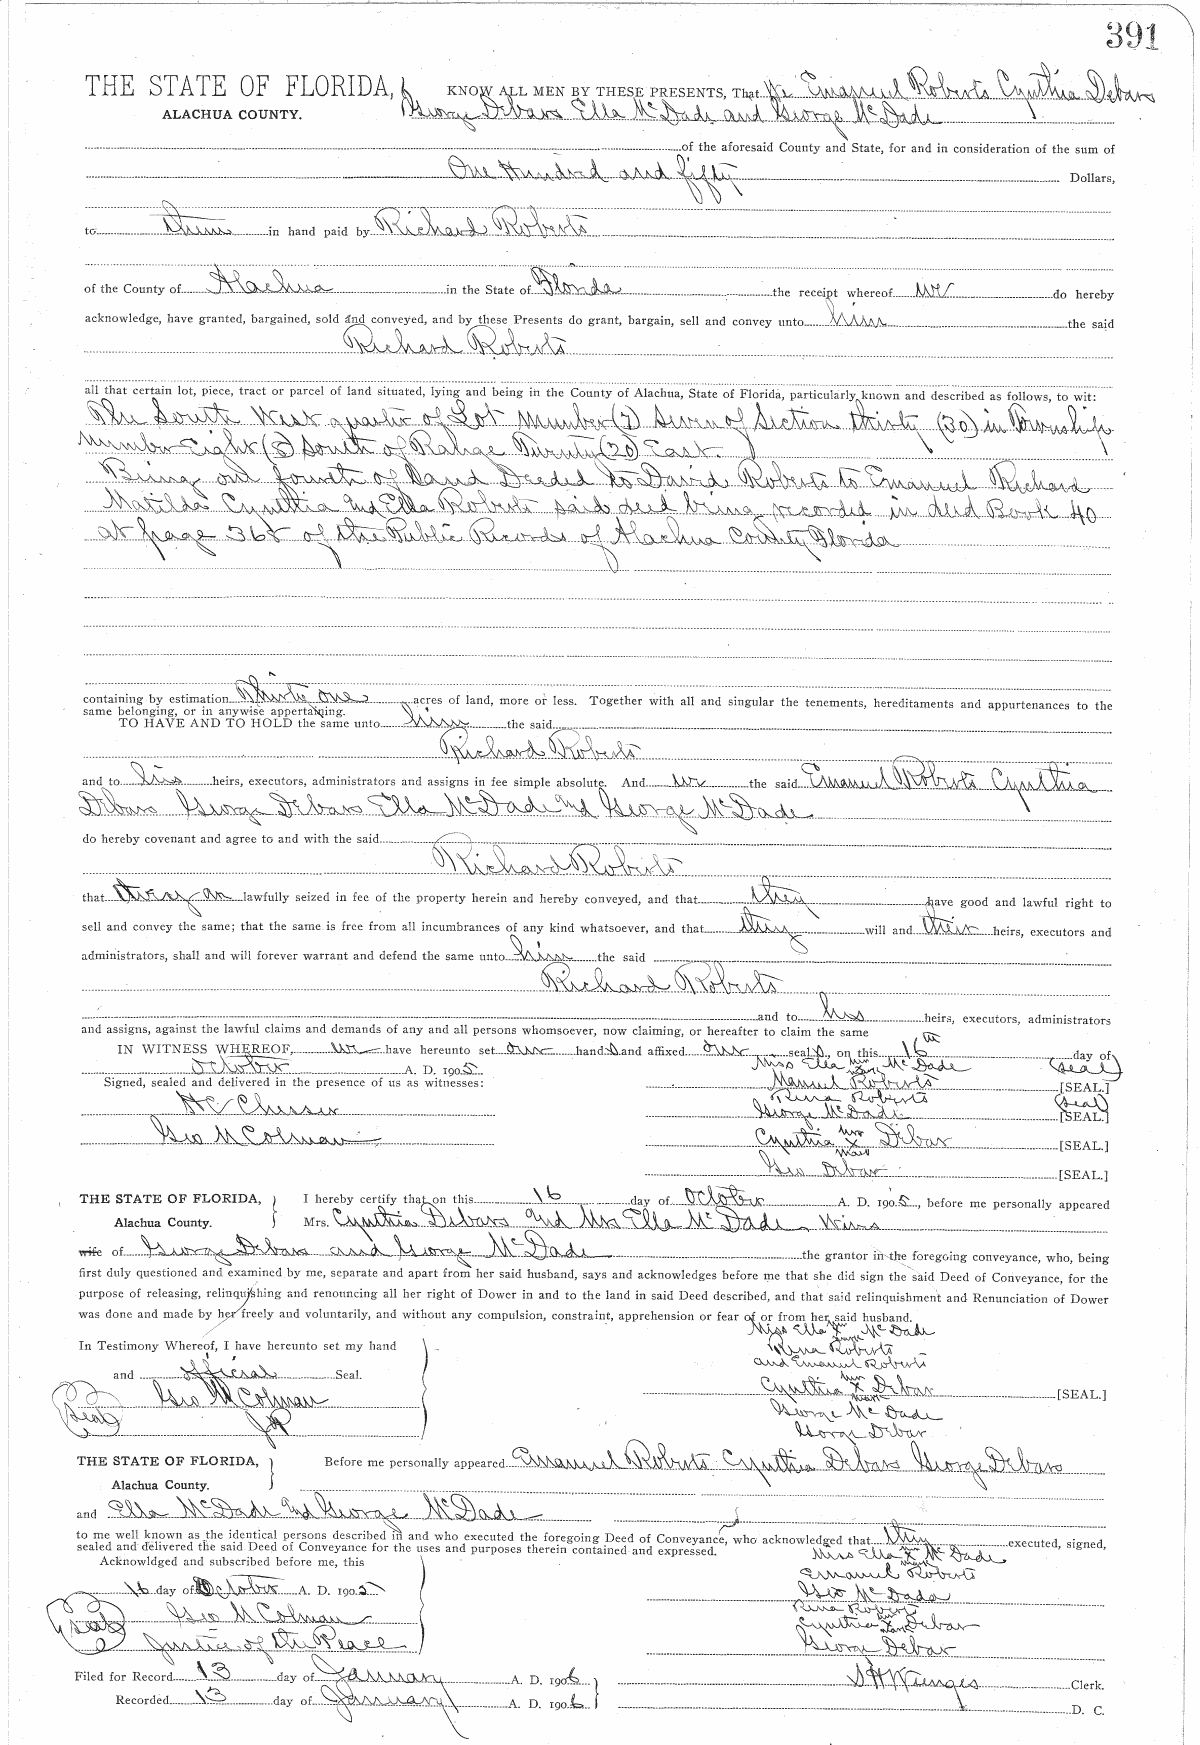 391
THE STATE OF FLORIDA, KNOW ALL MEN BY THESE PRESENTS, That We Emanuel Roberts Cynthia Debars
ALACHUA COUNTY. George Debars Ella McDade and George McDade
of the aforesaid County and State, for and in consideration of the sum of
One Hundred and fifty Dollars,
to them in hand paid by Richard Roberts
of the County of Alachua in the State of Florida the receipt whereof we do hereby
acknowledge, have granted, bargained, sold and conveyed, and by these Presents do grant, bargain, sell and convey unto him the said
Richard Roberts
all that certain lot, piece, tract or parcel of land situated, lying and being in the County of Alachua, State of Florida, particularly known and described as follows, to wit:
The South West quarter of Lot Number (7) Seven of Section thirty (30) in Township
Number Eight (8) South of Range Twenty (20) East.
Being one fourth of Land Deeded to David Roberts to Emanuel Richard
Matilda Cynthia and Ella Roberts said deed being recorded in deed Book 40
at page 368 of the Public Records of Alachua County Florida
containing by estimation Thirty one acres of land, more or less. Together with all and singular the tenements, hereditaments and appurtenances to the
same belonging, or in anywise appertaining.
TO HAVE AND TO HOLD the same unto him the said
Richard Roberts
and to his heirs, executors, administrators and assigns in fee simple absolute. And we the said Emanuel Roberts Cynthia
Debars George Debars Ella McDade and George McDade
do hereby covenant and agree to and with the said
Richard Roberts
that they are lawfully seized in fee of the property herein and hereby conveyed, and that they have good and lawful right to
sell and convey the same; that the same is free from all incumbrances of any kind whatsoever, and that they will and their heirs, executors and
administrators, shall and will forever warrant and defend the same unto him the said
Richard Roberts
and to his heirs, executors, administrators
and assigns, against the lawful claims and demands of any and all persons whomsoever, now claiming, or hereafter to claim the same
IN WITNESS WHEREOF, we have hereunto set our hands and affixed our seals, on this 16th day of
October A. D. 1905 Miss Ella McDade (Seal)
Signed, sealed and delivered in the presence of us as witnesses: Manuel Roberts [SEAL.]
Rena Roberts (Seal)
H C Chesser George McDade [SEAL.]
Geo M Colman Cynthia her x mark Debar [SEAL.]
Geo Debar [SEAL.]
THE STATE OF FLORIDA, I hereby certify that on this 16 day of October A. D. 1905, before me personally appeared
Alachua County. Mrs. Cynthia Debars and Mrs Ella McDade Wives
wife of George Debars and George McDade the grantor in the foregoing conveyance, who, being
first duly questioned and examined by me, separate and apart from her said husband, says and acknowledges before me that she did sign the said Deed of Conveyance, for the
purpose of releasing, relinquishing and renouncing all her right of Dower in and to the land in said Deed described, and that said relinquishment and Renunciation of Dower
was done and made by her freely and voluntarily, and without any compulsion, constraint, apprehension or fear of or from her said husband.
Miss Ella x McDade
In Testimony Whereof, I have hereunto set my hand Rena Roberts
and Emanuel Roberts
and official Seal.
Geo M Colman Cynthia her x mark Debar [SEAL.]
Seal JP George McDade
George Debar
THE STATE OF FLORIDA, Before me personally appeared Emanuel Roberts Cynthia Debars George Debars
Alachua County.
and Ella McDade and George McDade
to me well known as the identical persons described in and who executed the foregoing Deed of Conveyance, who acknowledged that they executed, signed,
sealed and delivered the said Deed of Conveyance for the uses and purposes therein contained and expressed.
Acknowldged and subscribed before me, this Mrs Ella x McDade
16 day of October A. D. 1905 Emanuel Roberts
Geo McDade
Seal Geo M Colman Rena Roberts
Cynthia her x mark Debar
Justice of the Peace George Debar
Filed for Record 13 day of January A. D. 1906 S H Wienges Clerk.
Recorded 13 day of January A. D. 1906 D. C.